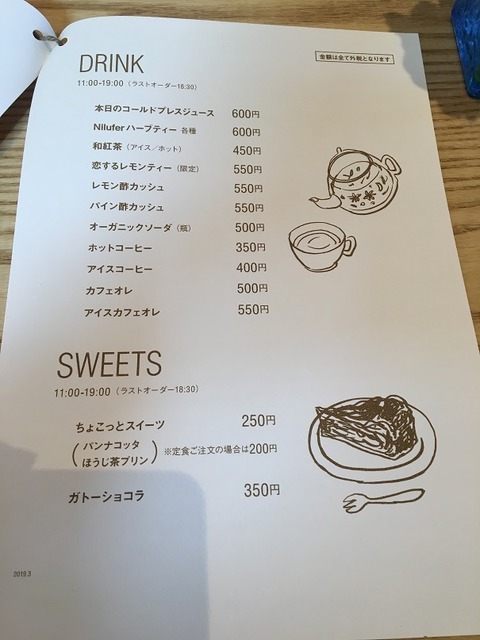 DRINK
金額は全て外税となります
11:00-19:00（ラストオーダー18:30）
本日のコールドプレスジュース 600円
Nilufer ハーブティー 各種 600円
和紅茶（アイス／ホット） 450円
恋するレモンティー（限定） 550円
レモン酢カッシュ 550円
パイン酢カッシュ 550円
オーガニックソーダ（瓶） 500円
ホットコーヒー 350円
アイスコーヒー 400円
カフェオレ 500円
アイスカフェオレ 550円
SWEETS
11:00-19:00（ラストオーダー18:30）
ちょこっとスイーツ 250円
（パンナコッタ
ほうじ茶プリン）※定食ご注文の場合は200円
ガトーショコラ 350円
2019.3